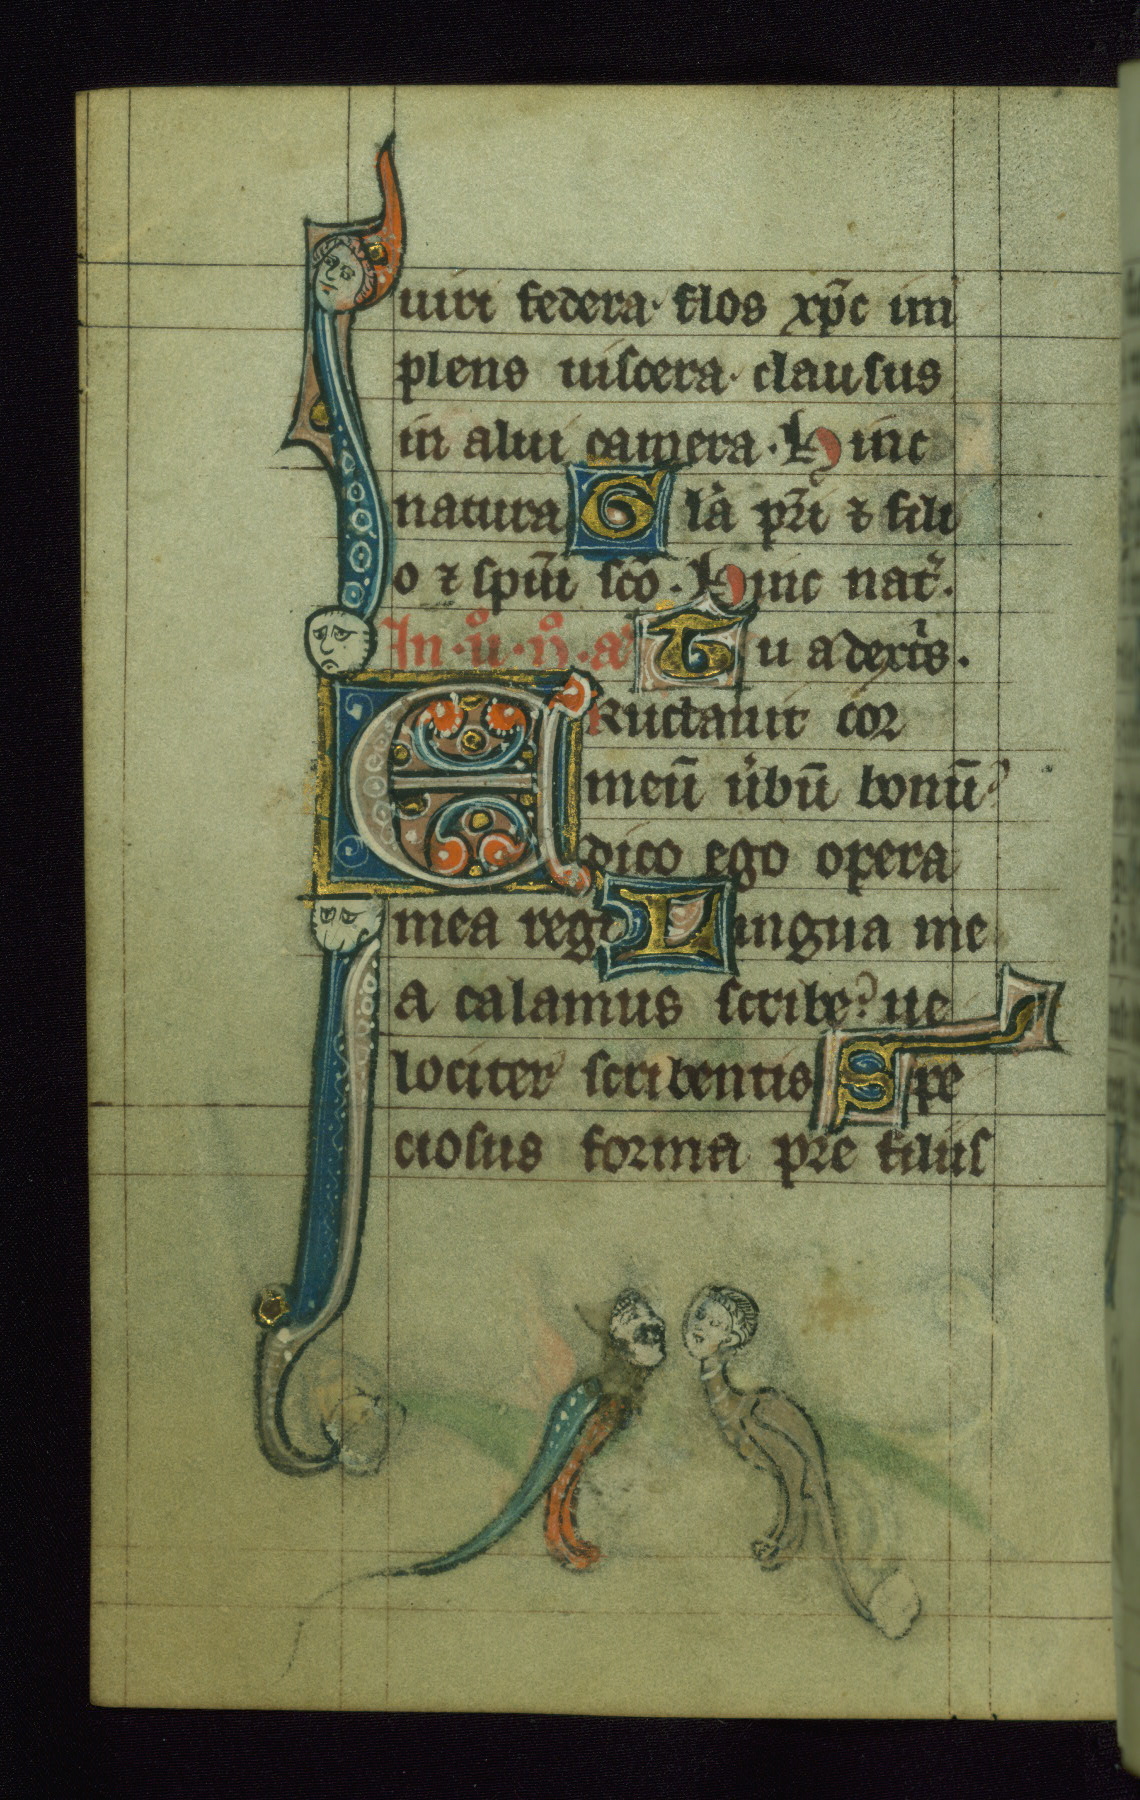 iuit federa· flos xp̄c im
plens uiscera· clausus
in alui camera· Hinc
natura Glã pr̃i ⁊ fili
o ⁊ spũi sc̃o. Hinc nat̃.
In·ũ·ñ·a᷑ Tu a dext̃s.
ERuctauit cor
meū u̾bū bonū
dico ego opera
mea regi Lingua me
a calamus scribe᷑ ue
lociter scribentis Spe
ciosus forma pre filiis